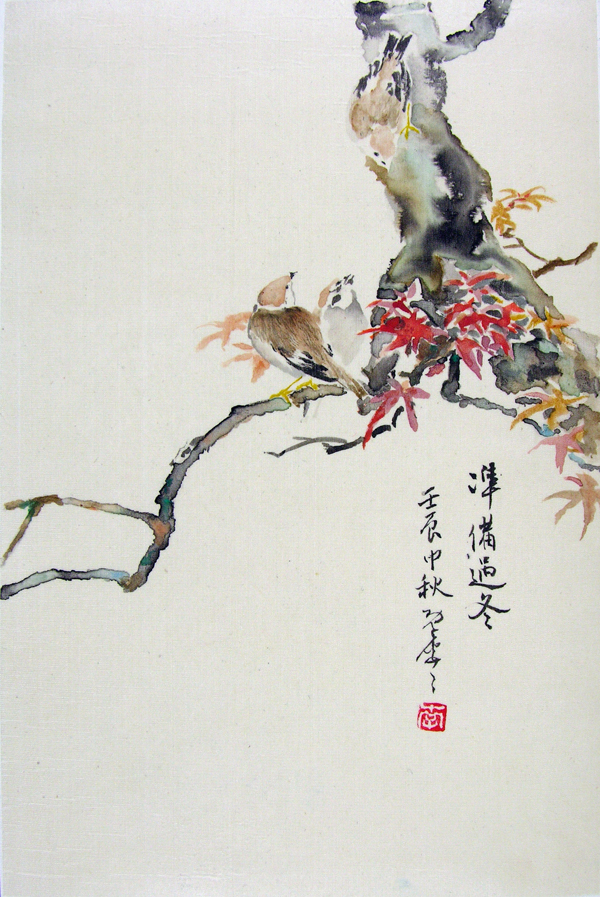 準備過冬
壬辰中秋